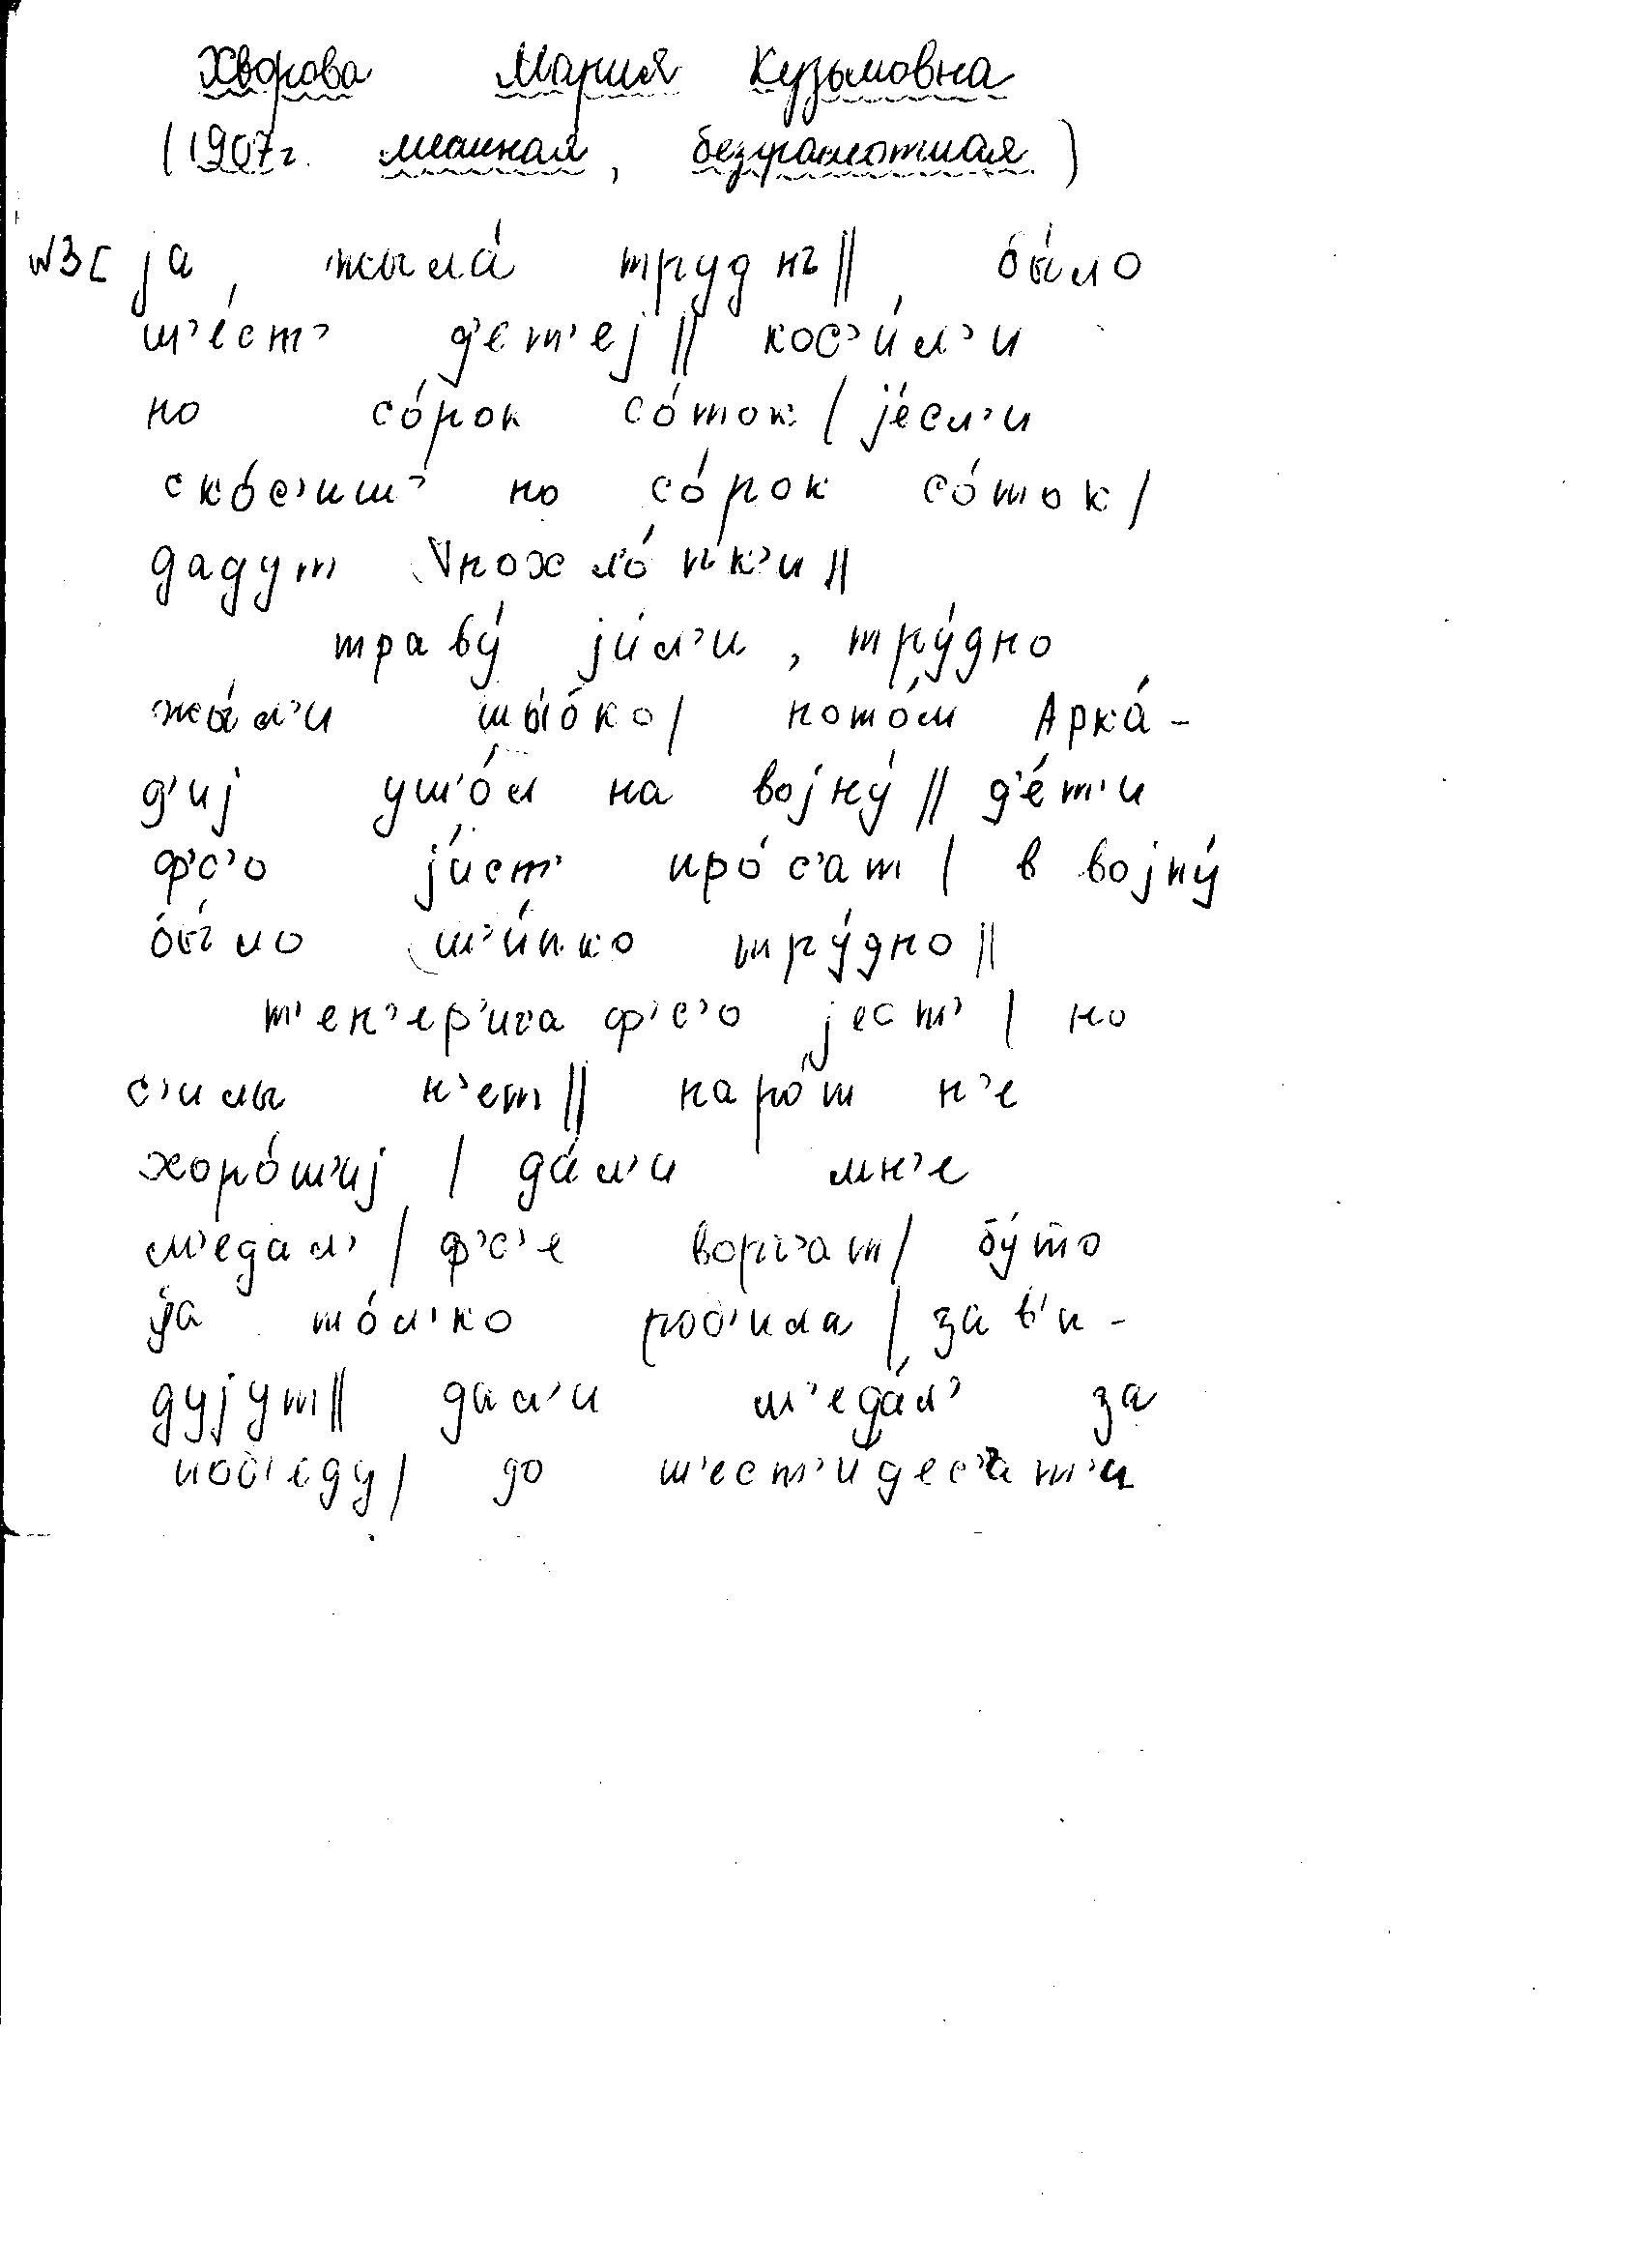 Хворова Мария Кузьмовна
(1907г. местная, безграмотная)
№3[ jа, жыла́ труднъ|| бы́ло
ш'е́ст' д'ет'еj|| кос'и́л'и
по со́рок со́ток / jе́сл'и
ско́с'иш' по со́рок со́ток /
даду́т похло́пк'и||
траву́ jи́л'и, тру́дно
жы́л'и шы́бко/ пото́м Арка́-
д'иj уш'о́л на воjну́|| д'е́т'и
ф'с'о jи́ст' про́с'ат / в воjну́
бы́ло ш'и́пко тру́дно||
т'еп'ер'ича ф'с'о jест' / но
с'илы н'ет|| наро́т н'е
хоро́ш'иj / да́л'и мн'е
м'едал' / ф'с'е ворч'ат/ бу́то
jа то́л'ко роб'ила / зав'и-
дуjут|| дал'и м'еда́л' за
поб'еду/ до ш'ест'идес'ат'и